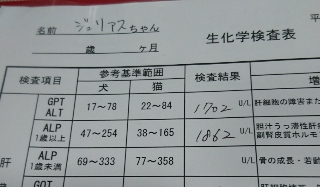 平
名前 ジュリアスちゃん
歳 ヶ月
生化学検査表
検査項目 参考基準範囲 検査結果 増
犬 猫
GPT ALT 17〜78 22〜84 1702 U/L 肝細胞の障害また
ALP 1歳以上 47〜254 38〜165 1862 U/L 胆汁うっ滞性肝
副腎皮質ホルモ
肝 ALP 1歳未満 69〜333 77〜358 U/L 骨の成長・若齢
GOT